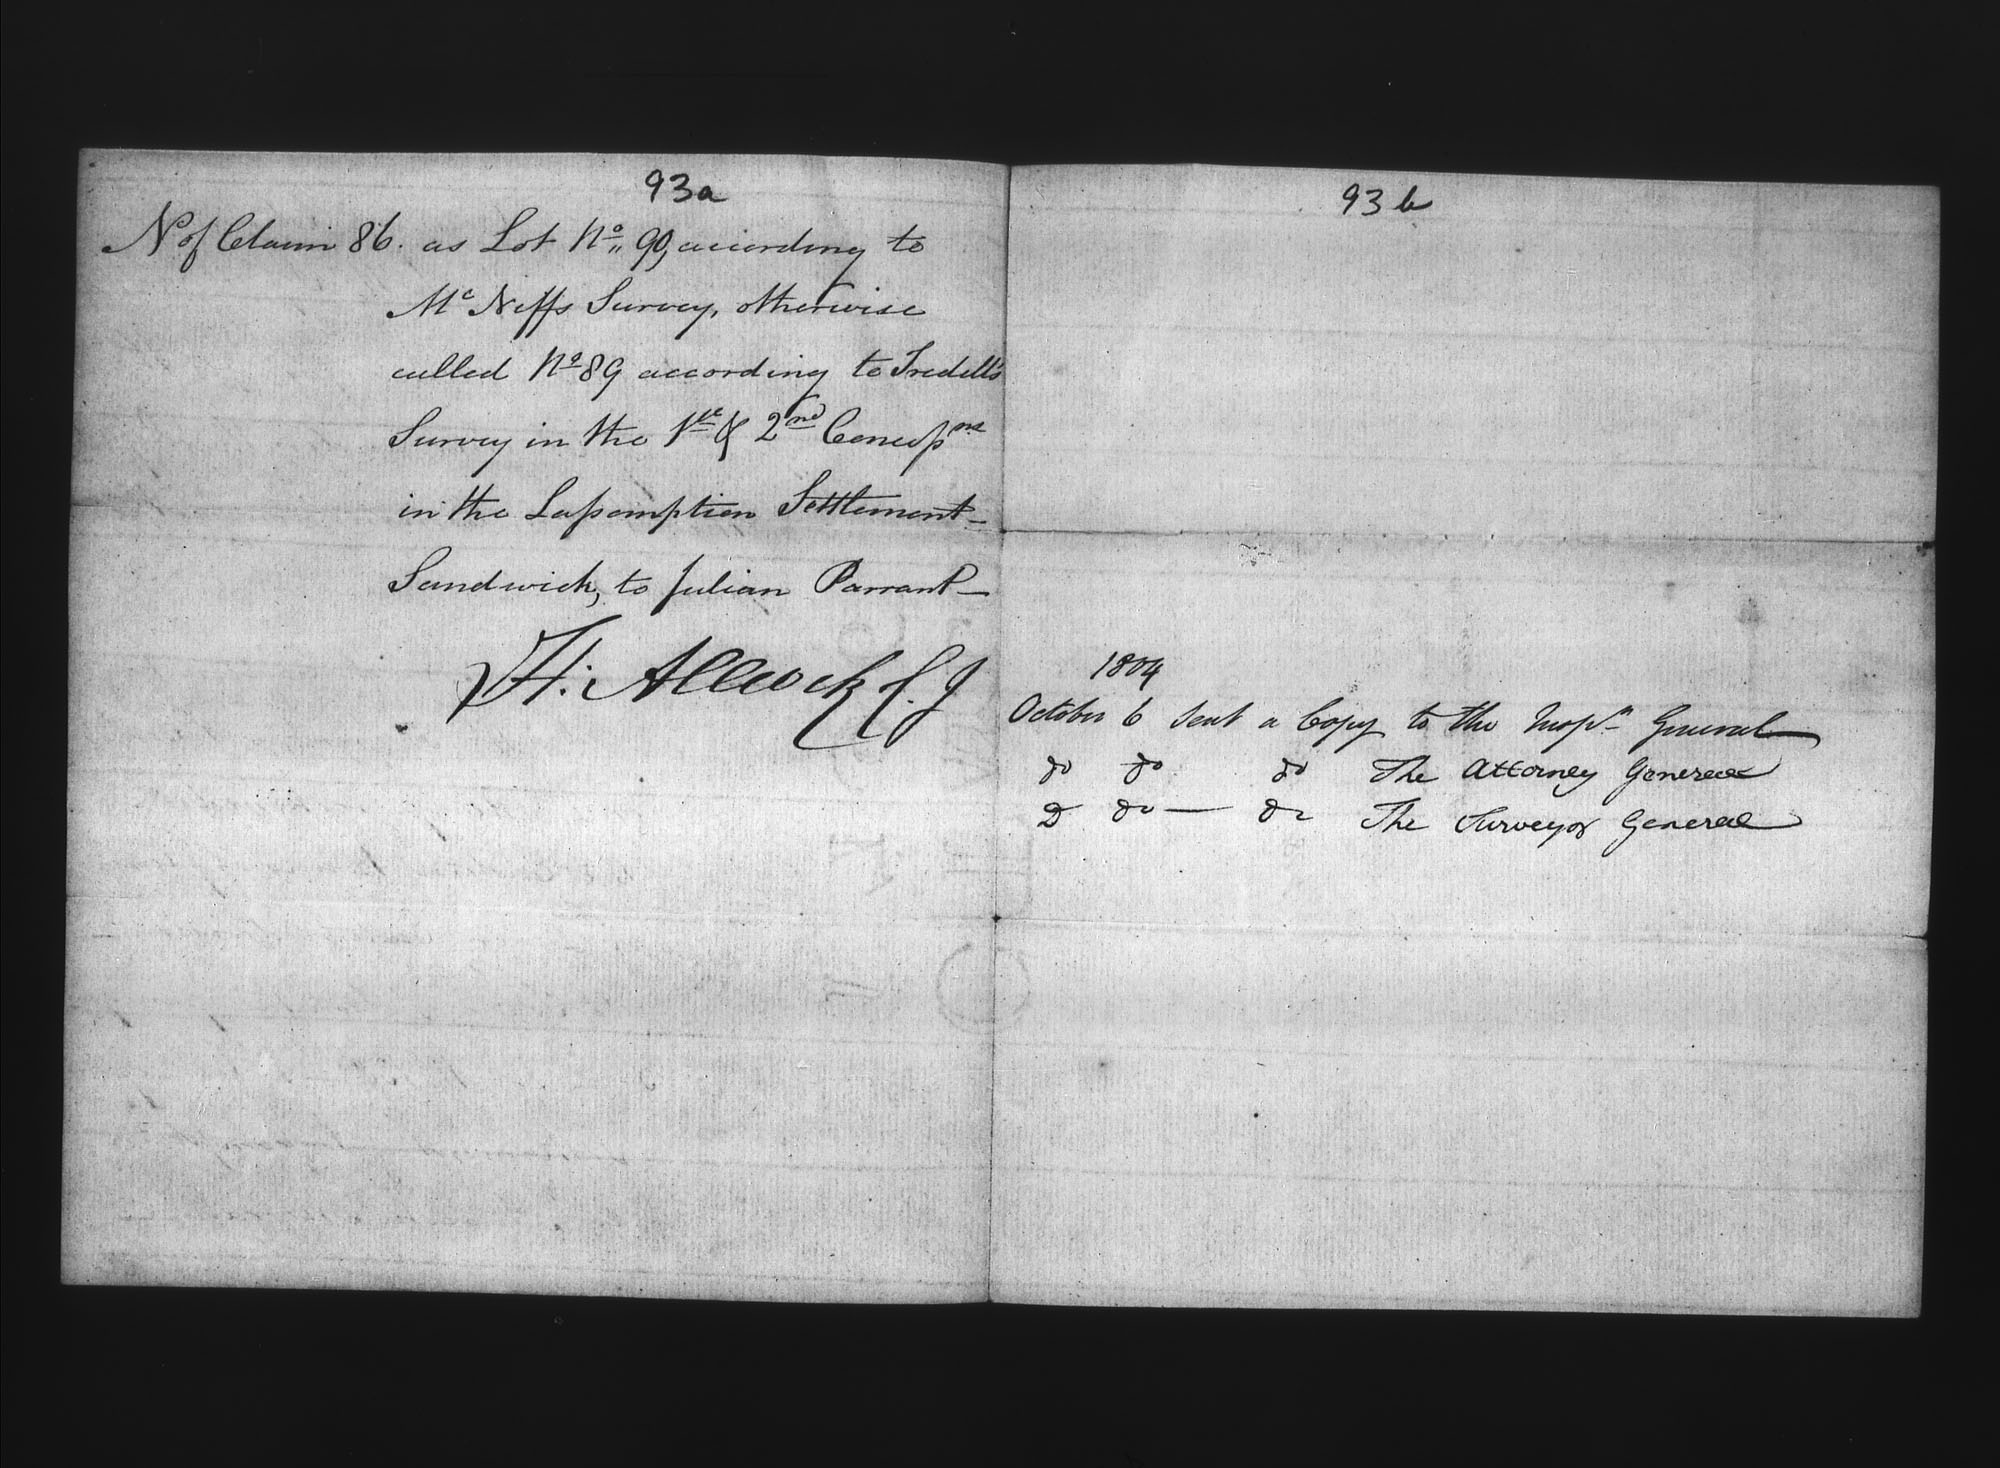 93a
N of Claim 86. as Lot No. 90, according to
Mc Niffs Survey, otherwise
called No 89 according to Iredell's
Survey in the 1st & 2nd Concessns
in the Lassomption Settlement -
Sandwich, to Julian Parrant -
H: Allcock C. J
93 b
1804
October 6 sent a Copy to the Inspr General
do do do The Attorney General
D do — do The Surveyor General